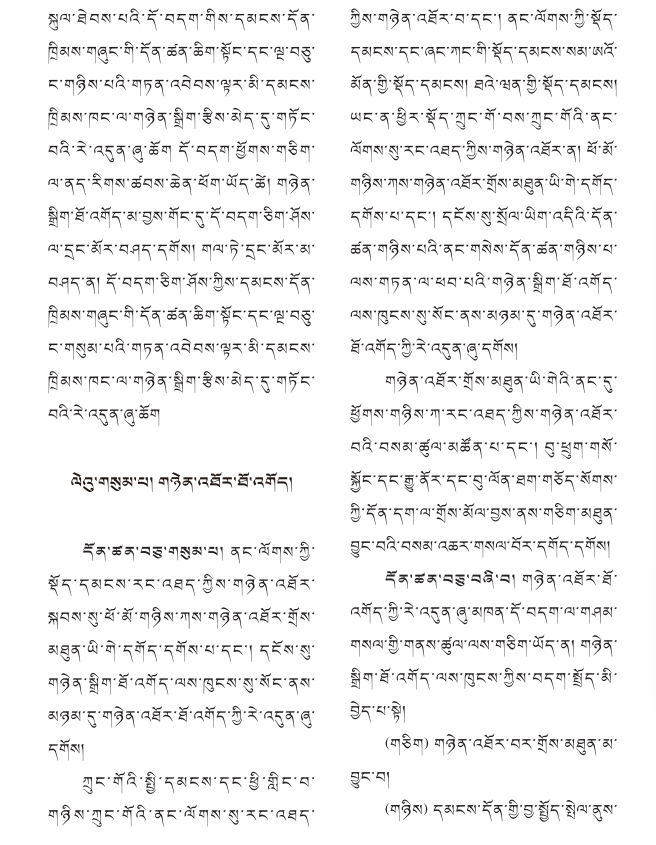 སྐུལ་ཐེབས་པའི་དོ་བདག་གིས་དམངས་དོན་
ཁྲིམས་གཞུང་གི་དོན་ཚན་ཆིག་སྟོང་དང་ལྔ་བཅུ་
ང་གཉིས་པའི་གཏན་འབེབས་ལྟར་མི་དམངས་
ཁྲིམས་ཁང་ལ་གཉེན་སྒྲིག་རྩིས་མེད་དུ་གཏོང་
བའི་རེ་འདུན་ཞུ་ཆོག དོ་བདག་ཕྱོགས་གཅིག་
ལ་ནད་རིགས་ཚབས་ཆེན་ཕོག་ཡོད་ཚེ། གཉེན་
སྒྲིག་ཐོ་འགོད་མ་བྱས་གོང་དུ་དོ་བདག་ཅིག་ཤོས་
ལ་དྲང་མོར་བཤད་དགོས། གལ་ཏེ་དྲང་མོར་མ་
བཤད་ན། དོ་བདག་ཅིག་ཤོས་ཀྱིས་དམངས་དོན་
ཁྲིམས་གཞུང་གི་དོན་ཚན་ཆིག་སྟོང་དང་ལྔ་བཅུ་
ང་གསུམ་པའི་གཏན་འབེབས་ལྟར་མི་དམངས་
ཁྲིམས་ཁང་ལ་གཉེན་སྒྲིག་རྩིས་མེད་དུ་གཏོང་
བའི་རེ་འདུན་ཞུ་ཆོག
ལེའུ་གསུམ་པ། གཉེན་འཐོར་ཐོ་འགོད།
དོན་ཚན་བཅུ་གསུམ་པ། ནང་ལོགས་ཀྱི་
སྡོད་དམངས་རང་འཐད་ཀྱིས་གཉེན་འཐོར་
སྐབས་སུ་ཕོ་མོ་གཉིས་ཀས་གཉེན་འཐོར་གྲོས་
མཐུན་ཡི་གེ་དགོད་དགོས་པ་དང་། དངོས་སུ་
གཉེན་སྒྲིག་ཐོ་འགོད་ལས་ཁུངས་སུ་སོང་ནས་
མཉམ་དུ་གཉེན་འཐོར་ཐོ་འགོད་ཀྱི་རེ་འདུན་ཞུ་
དགོས།
ཀྲུང་གོའི་སྤྱི་དམངས་དང་ཕྱི་གླིང་བ་
གཉིས་ཀྲུང་གོའི་ནང་ལོགས་སུ་རང་འཐད་
ཀྱིས་གཉེན་འཐོར་བ་དང་། ནང་ལོགས་ཀྱི་སྡོད་
དམངས་དང་ཞང་ཀང་གི་སྡོད་དམངས་སམ་ཨའོ་
མོན་གྱི་སྡོད་དམངས། ཐའེ་ཝན་གྱི་སྡོད་དམངས།
ཡང་ན་ཕྱིར་སྡོད་ཀྲུང་གོ་བས་ཀྲུང་གོའི་ནང་
ལོགས་སུ་རང་འཐད་ཀྱིས་གཉེན་འཐོར་ན། ཕོ་མོ་
གཉིས་ཀས་གཉེན་འཐོར་གྲོས་མཐུན་ཡི་གེ་དགོད་
དགོས་པ་དང་། དངོས་སུ་སྲོལ་ཡིག་འདིའི་དོན་
ཚན་གཉིས་པའི་ནང་གསེས་དོན་ཚན་གཉིས་པ་
ལས་གཏན་ལ་ཕབ་པའི་གཉེན་སྒྲིག་ཐོ་འགོད་
ལས་ཁུངས་སུ་སོང་ནས་མཉམ་དུ་གཉེན་འཐོར་
ཐོ་འགོད་ཀྱི་རེ་འདུན་ཞུ་དགོས།
གཉེན་འཐོར་གྲོས་མཐུན་ཡི་གེའི་ནང་དུ་
ཕྱོགས་གཉིས་ཀ་རང་འཐད་ཀྱིས་གཉེན་འཐོར་
བའི་བསམ་ཚུལ་མཚོན་པ་དང་། བུ་ཕྲུག་གསོ་
སྐྱོང་དང་རྒྱུ་ནོར་དང་བུ་ལོན་ཐག་གཅོད་སོགས་
ཀྱི་དོན་དག་ལ་གྲོས་མོལ་བྱས་ནས་གཅིག་མཐུན་
བྱུང་བའི་བསམ་འཆར་གསལ་བོར་དགོད་དགོས།
དོན་ཚན་བཅུ་བཞི་བ། གཉེན་འཐོར་ཐོ་
འགོད་ཀྱི་རེ་འདུན་ཞུ་མཁན་དོ་བདག་ལ་གཤམ་
གསལ་གྱི་གནས་ཚུལ་ལས་གཅིག་ཡོད་ན། གཉེན་
སྒྲིག་ཐོ་འགོད་ལས་ཁུངས་ཀྱིས་བདག་སྤྲོད་མི་
བྱེད་པ་སྟེ།
(གཅིག) གཉེན་འཐོར་བར་གྲོས་མཐུན་མ་
བྱུང་བ།
(གཉིས) དམངས་དོན་གྱི་བྱ་སྤྱོད་སྤེལ་ནུས་